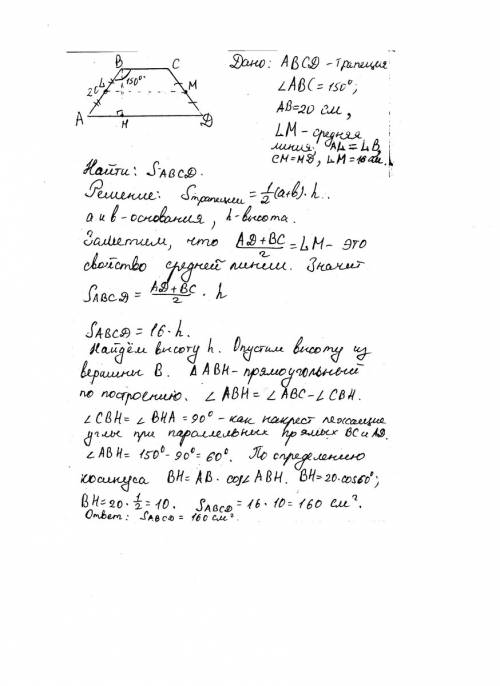 B C
L 150° M
20
A H D
Дано: ABCD - трапеция
∠ABC = 150°;
AB = 20 см,
LM - средняя
линия; AL = LB,
CM = MD, LM = 16 см.
Найти: SABCD.
Решение: Sтрапеции = 1/2 (a+b) · h..
a и b - основания, h - высота.
Заметим, что AD+BC/2 = LM - это
свойство средней линии. Значит
SABCD = AD+BC/2 · h
SABCD = 16 · h.
Найдём высоту h. Опустим высоту из
вершины B. △ABH - прямоугольный
по построению. ∠ABH = ∠ABC - ∠CBH.
∠CBH = ∠BHA = 90° - как накрест лежащие
углы при параллельных прямых BC и AD.
∠ABH = 150° - 90° = 60°. По определению
косинуса BH = AB · cos∠ABH. BH = 20 · cos60°;
BH = 20 · 1/2 = 10. SABCD = 16 · 10 = 160 см².
Ответ: SABCD = 160 см².